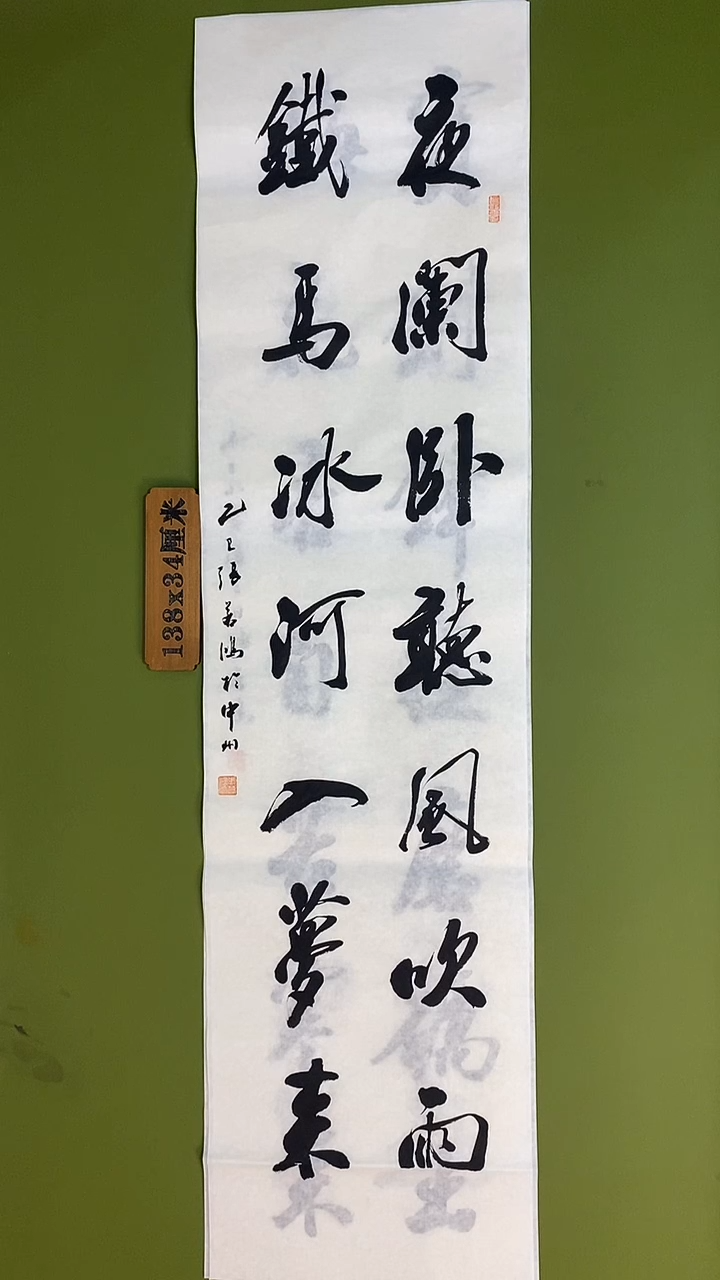 夜闌卧聽風吹雨
鐵馬冰河入夢来
乙巳張若鴻於中州
138x34厘米